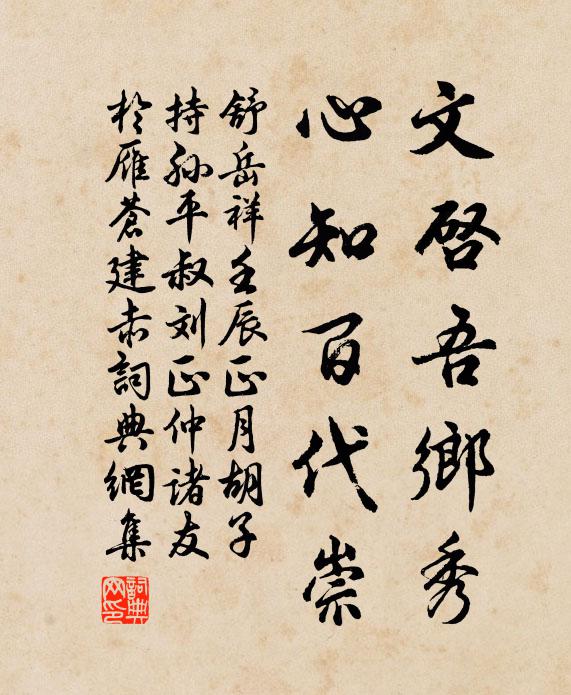 文啓吾鄉秀
心知百代崇
舒岳祥壬辰正月胡子
持孙平叔刘正仲諸友
於雁蒼建赤詞典網集
詞典網印